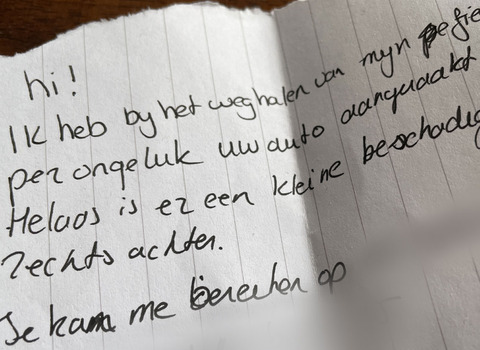 hi!
Ik heb by het weghalen van myn
per ongeluk uw auto aangeraakt
Helaas is er een kleine beschadig
Rechts achter.
Je kan me bereiken op